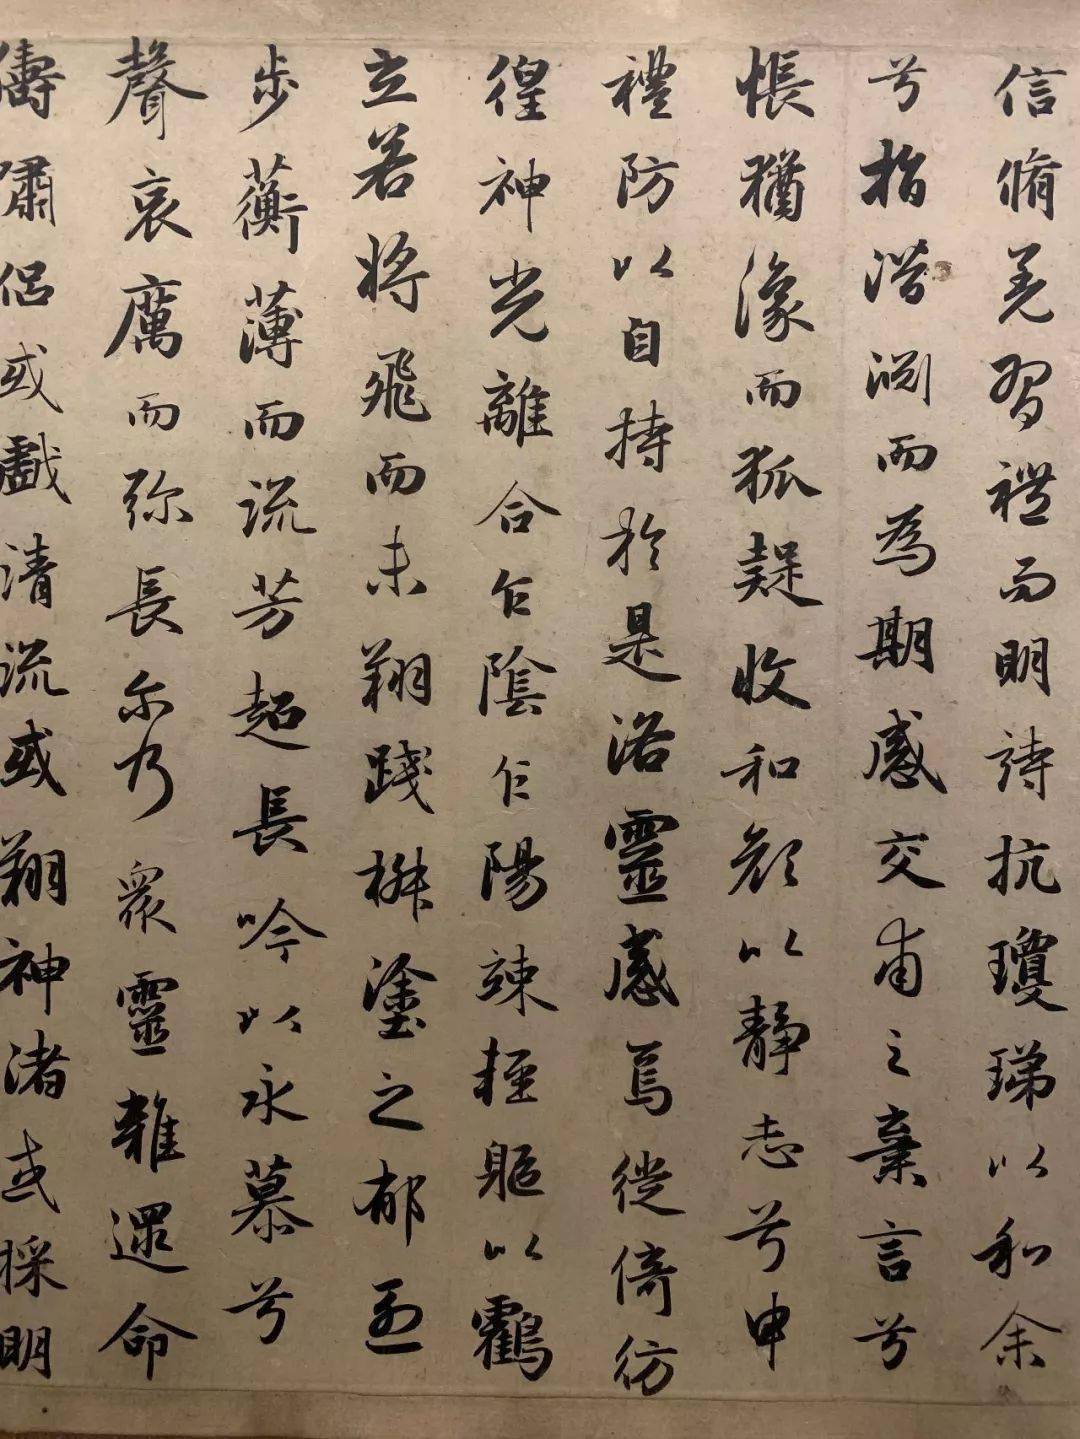 信脩羌習禮而明詩抗瓊珶以和余
兮指潛淵而為期感交甫之棄言兮
悵猶豫而狐疑收和顏以靜志兮申
禮防以自持於是洛靈感焉徙倚彷
徨神光離合乍陰乍陽竦輕軀以鶴
立若將飛而未翔踐椒塗之郁烈
步蘅薄而流芳超長吟以永慕兮
聲哀厲而弥長尓乃眾靈雜遝命
儔嘯侶或戲清流或翔神渚或採明